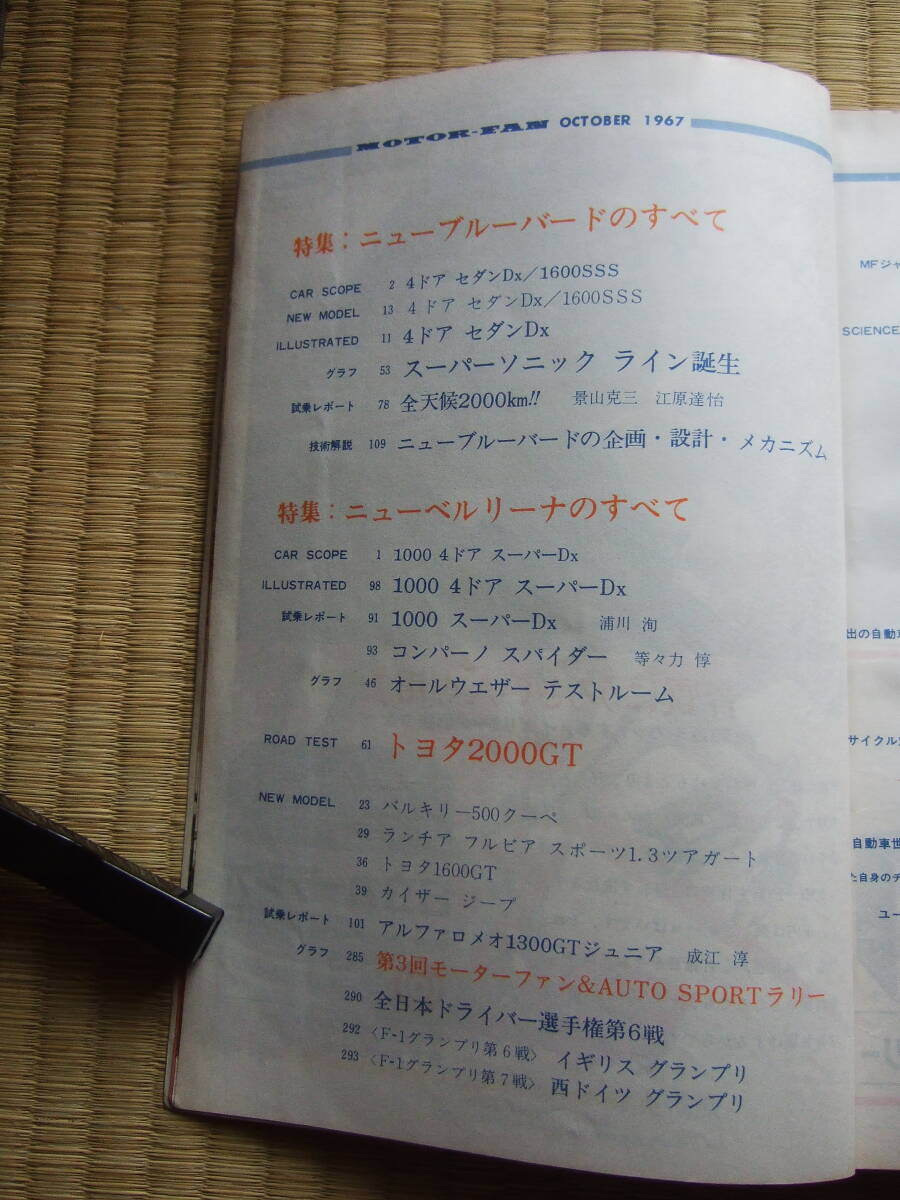 MOTOR-FAN OCTOBER 1967
特集：ニューブルーバードのすべて
CAR SCOPE 2 4ドア セダンDx／1600SSS
NEW MODEL 13 4ドア セダンDx／1600SSS
ILLUSTRATED 11 4ドア セダンDx
グラフ 53 スーパーソニック ライン誕生
試乗レポート 78 全天候2000km!! 景山克三 江原達怡
技術解説 109 ニューブルーバードの企画・設計・メカニズム
特集：ニューベルリーナのすべて
CAR SCOPE 1 1000 4ドア スーパーDx
ILLUSTRATED 98 1000 4ドア スーパーDx
試乗レポート 91 1000 スーパーDx 浦川 洵
93 コンパーノ スパイダー 等々力 惇
グラフ 46 オールウエザー テストルーム
ROAD TEST 61 トヨタ2000GT
NEW MODEL 23 バルキリー500クーペ
29 ランチア フルビア スポーツ1.3ツアガート
36 トヨタ1600GT
39 カイザー ジープ
試乗レポート 101 アルファロメオ1300GTジュニア 成江 淳
グラフ 285 第3回モーターファン&AUTO SPORTラリー
290 全日本ドライバー選手権第6戦
292 〈F-1グランプリ第6戦〉 イギリス グランプリ
293 〈F-1グランプリ第7戦〉 西ドイツ グランプリ
MFジャ
SCIENCE
出の自動車
サイクル
自動車世
た自身のデ
ユー